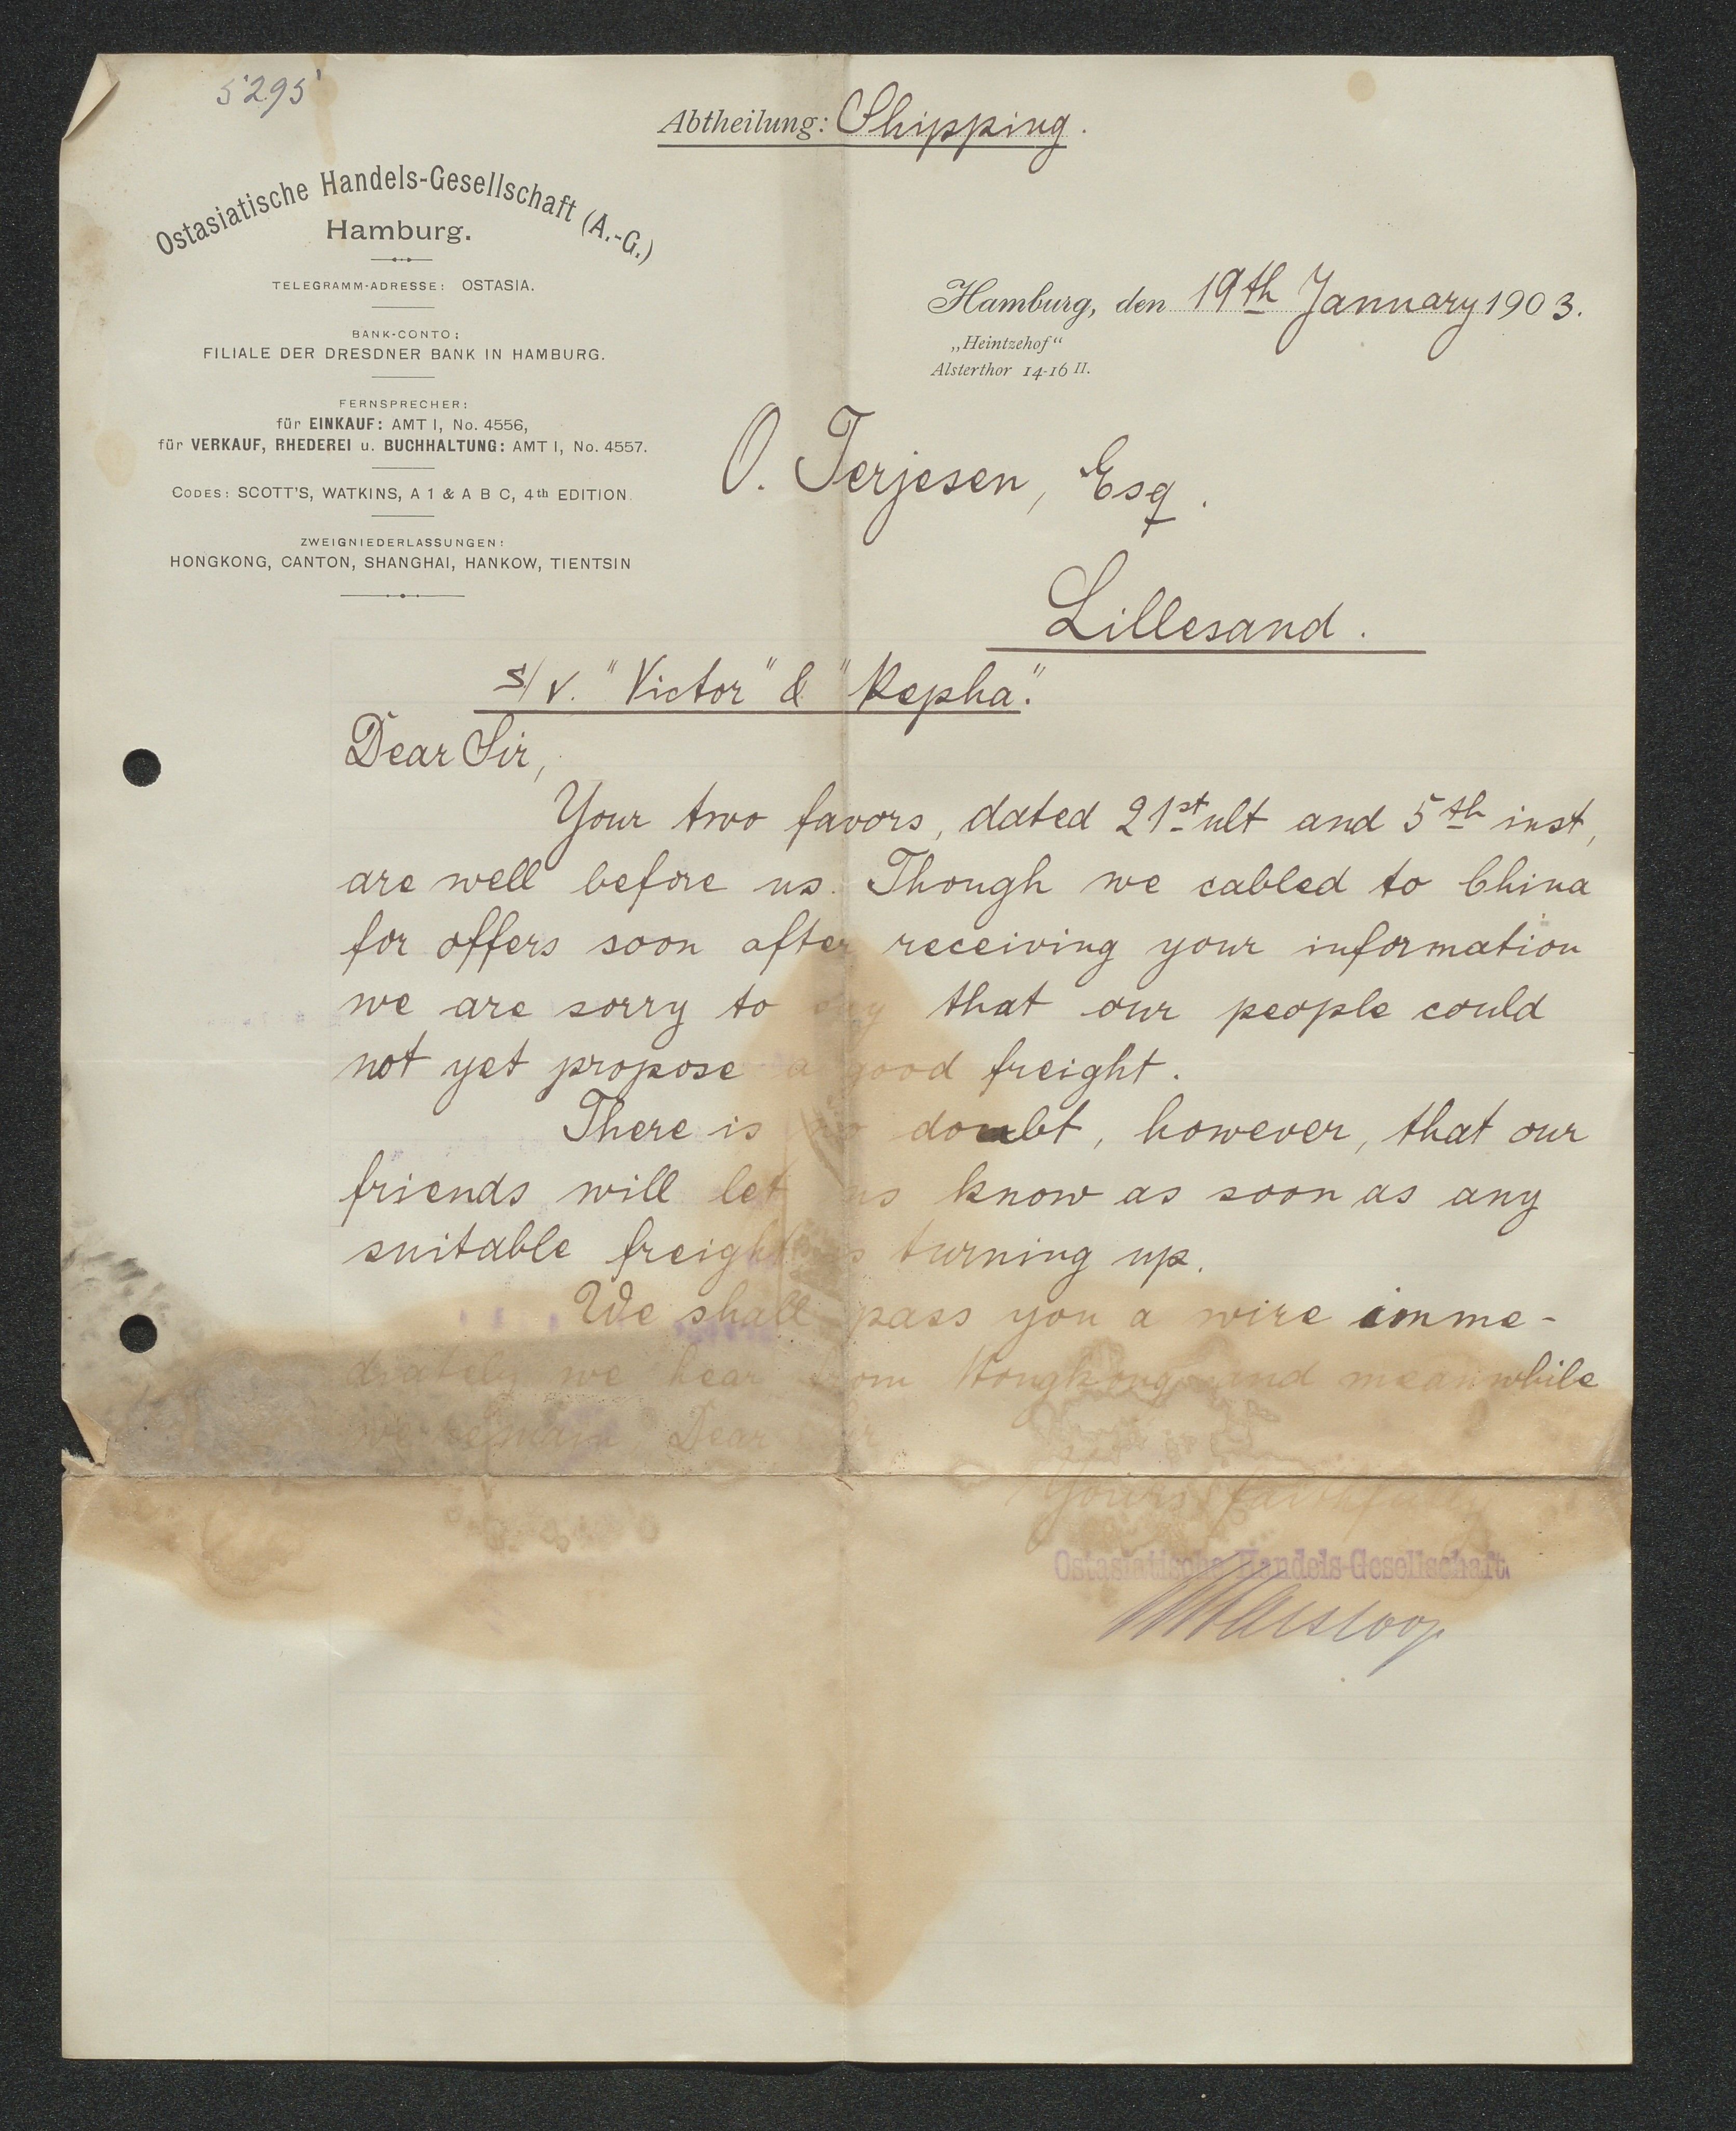 5295
Abtheilung: Shipping.
Ostasiatische Handels-Gesellschaft (A.-G.)
Hamburg.
TELEGRAMM-ADRESSE: OSTASIA.
BANK-CONTO:
FILIALE DER DRESDNER BANK IN HAMBURG.
FERNSPRECHER:
für EINKAUF: AMT I, No. 4556,
für VERKAUF, RHEDEREI u. BUCHHALTUNG: AMT I, No. 4557.
CODES: SCOTT'S, WATKINS, A 1 & A B C, 4th EDITION.
ZWEIGNIEDERLASSUNGEN:
HONGKONG, CANTON, SHANGHAI, HANKOW, TIENTSIN
Hamburg, den 19th January 1903.
„Heintzehof“
Alsterthor 14-16 II.
O. Terjesen, Esq.
Lillesand.
s/v. "Victor" & "Repha".
Dear Sir,
Your two favors, dated 21st ult and 5th inst,
are well before us. Though we cabled to China
for offers soon after receiving your information
we are sorry to say that our people could
not yet propose a good freight.
There is no doubt, however, that our
friends will let us know as soon as any
suitable freight is turning up.
We shall pass you a wire imme-
diately we hear from Hongkong and meanwhile
we remain, Dear Sir
Yours faithfully
Ostasiatische Handels-Gesellschaft.